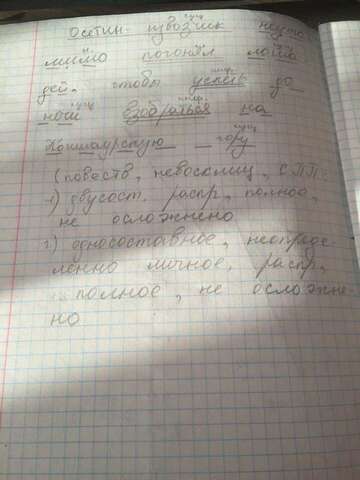 Осетин- извозчик неуто
мимо погонял лоша
дей, чтобы успеть до
ночи взобраться на
Койшаурскую гору
(повеств, невосклиц, СПП:
1) двусост. распр, полное,
не осложнено
2.) односоставное, неопреде
ленно личное, распр,
полное, не осложне-
но